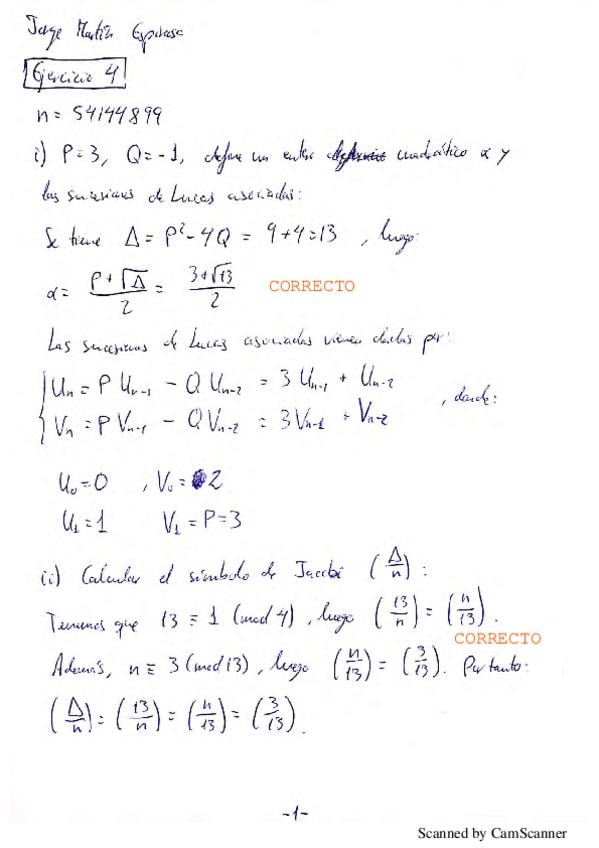 Jorge Martín Espinosa
Ejercicio 4
n = 54144899
i) P=3, Q=-1, define un entero cuadrático α y
las sucesiones de Lucas asociadas:
Se tiene Δ = P² - 4Q = 9+4=13, luego:
α = (P+√Δ)/2 = (3+√13)/2 CORRECTO
Las sucesiones de Lucas asociadas vienen dadas por:
{ Uₙ = P Uₙ₋₁ - Q Uₙ₋₂ = 3 Uₙ₋₁ + Uₙ₋₂
Vₙ = P Vₙ₋₁ - Q Vₙ₋₂ = 3Vₙ₋₁ + Vₙ₋₂ , donde:
U₀=0 , V₀=2
U₁=1 V₁=P=3
ii) Calcular el símbolo de Jacobi (Δ/n) :
Tenemos que 13 ≡ 1 (mod 4), luego (13/n) = (n/13).
CORRECTO
Además, n ≡ 3 (mod 13), luego (n/13) = (3/13). Por tanto:
(Δ/n) = (13/n) = (n/13) = (3/13).
-1-
Scanned by CamScanner